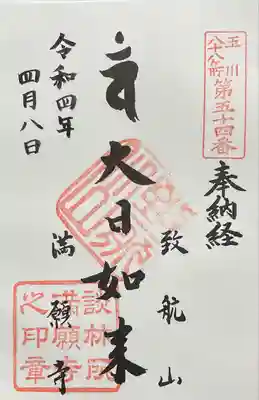 玉川
八十八ヶ所
第五十四番
奉納経
致航山
大日如来
満願寺
令和四年
四月八日
談林所
満願寺
之印章